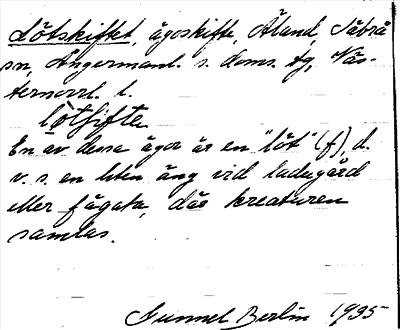 Lötskiftet, ägoskifte, Åland, Säbrå
sn, Ångermanl. s. doms. tg, Väs-
ternorrl. l.
lötʃifte
En av dessa ägor är en "löt" (f), d.
v. s. en liten äng vid ladugård
eller fägata, där kreaturen
samlas.
Gunnel Berlin 1935